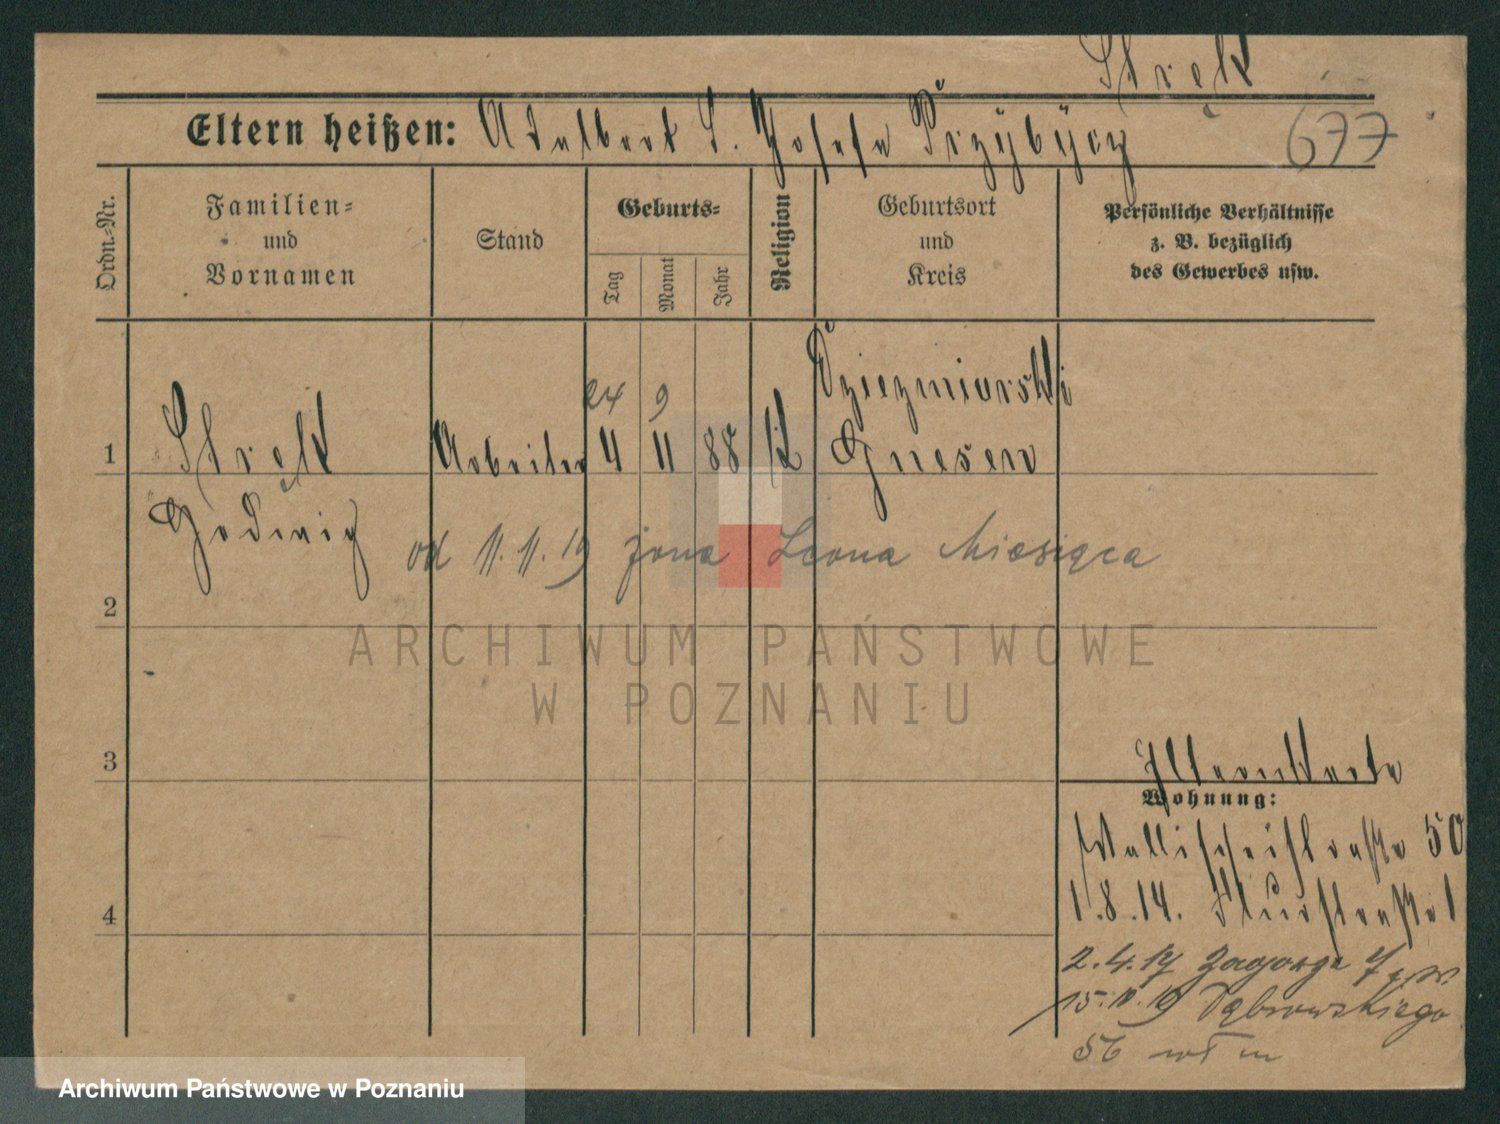 Strek
Eltern heißen: Adalbert u. Josefa Przybycz
677
Ordn.-Nr.
Familien-
und
Vornamen
Stand
Geburts-
Tag
Monat
Jahr
Religion
Geburtsort
und
Kreis
Persönliche Verhältnisse
z. B. bezüglich
des Gewerbes usw.
24 9
Dziezmiarski
1 Strek Arbeiter 4 11 88 K Gnesen
Hedwig
od 11.11.19 żona Leona Miesiąca
2
ARCHIWUM PAŃSTWOWE
W POZNANIU
3
Elternkarte
Wohnung:
Wallischeistraße 50
4
1.8.14. Flurstraße 1
2.4.17 Zagorze 7
15.10.19 Dąbrowskiego
56
Archiwum Państwowe w Poznaniu